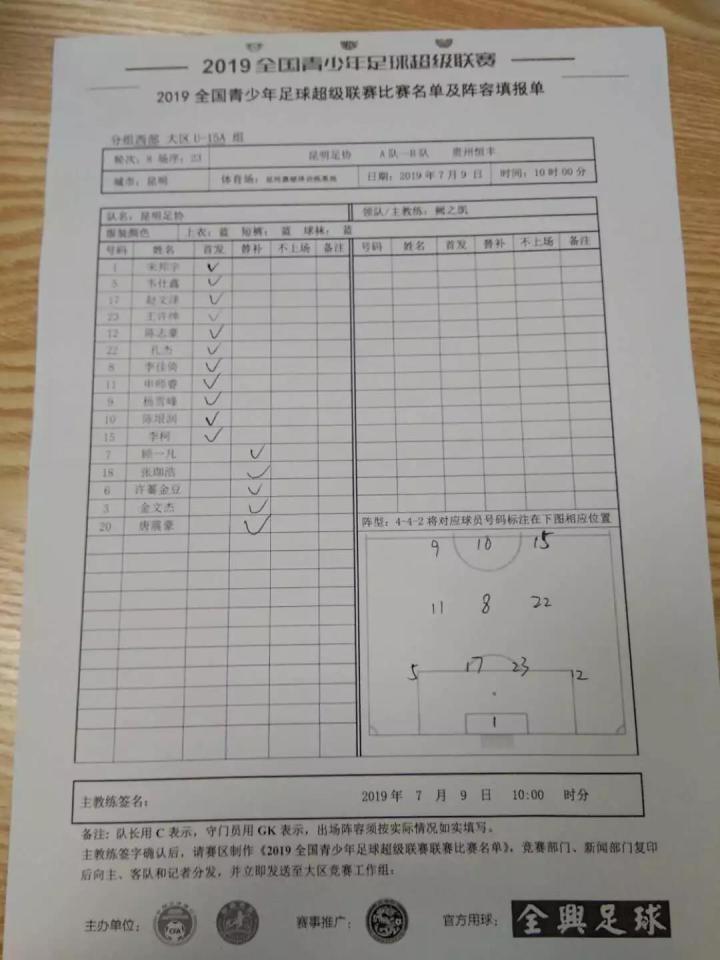 2019 全国青少年足球超级联赛
2019 全国青少年足球超级联赛比赛名单及阵容填报单
分组西部 大区 U-15A 组
轮次: 8 场序: 23 昆明足协 A 队—B 队 贵州恒丰
城市: 昆明 体育场: 日期: 2019 年 7 月 9 日 时间: 10 时 00 分
队名: 昆明足协 领队/主教练:
服装颜色 上衣: 蓝 短裤: 蓝 球袜: 蓝
号码 姓名 首发 替补 不上场 备注 号码 姓名 首发 替补 不上场 备注
1 宋邦宇 ✓
5 韦仕鑫 ✓
17 赵文泽 ✓
23 ✓
12 陈志豪 ✓
22 孔杰 ✓
8 李佳倚 ✓
11 申师睿 ✓
9 杨雪峰 ✓
10 陈垠润 ✓
15 李柯 ✓
7 顾一凡 ✓
18 张珈浩 ✓
6 许蓦金豆 ✓
3 金文杰 ✓
20 唐震豪 ✓
阵型: 4-4-2 将对应球员号码标注在下图相应位置
9 10 15
11 8 22
5 17 23 12
1
主教练签名: 2019 年 7 月 9 日 10:00 时分
备注: 队长用 C 表示，守门员用 GK 表示，出场阵容须按实际情况如实填写。
主教练签字确认后，请赛区制作《2019 全国青少年足球超级联赛联赛比赛名单》，竞赛部门、新闻部门复印
后向主、客队和记者分发，并立即发送至大区竞赛工作组:
主办单位: CFA 赛事推广: 官方用球: 全興足球